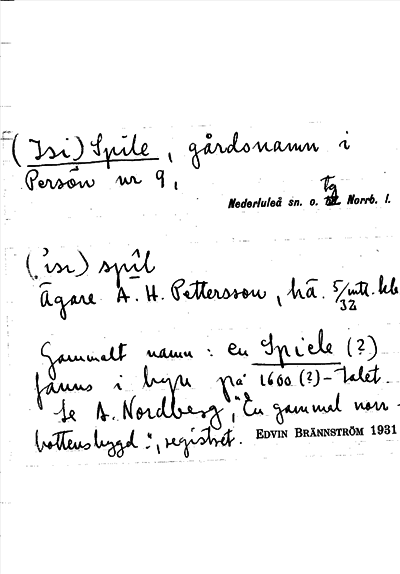 (Isi) Spile, gårdsnamn i
Persön nr 9,
Nederluleå sn. o. tg Norrb. l.
(ˈisɩ) spîl
Ägare A. H. Pettersson, hä. 5/32 mtl. kb
Gammalt namn: en Spiele (?)
fanns i byn på 1600 (?)-talet.
Se A. Nordberg, "En gammal norr-
bottensbygd", registret.
EDVIN BRÄNNSTRÖM 1931